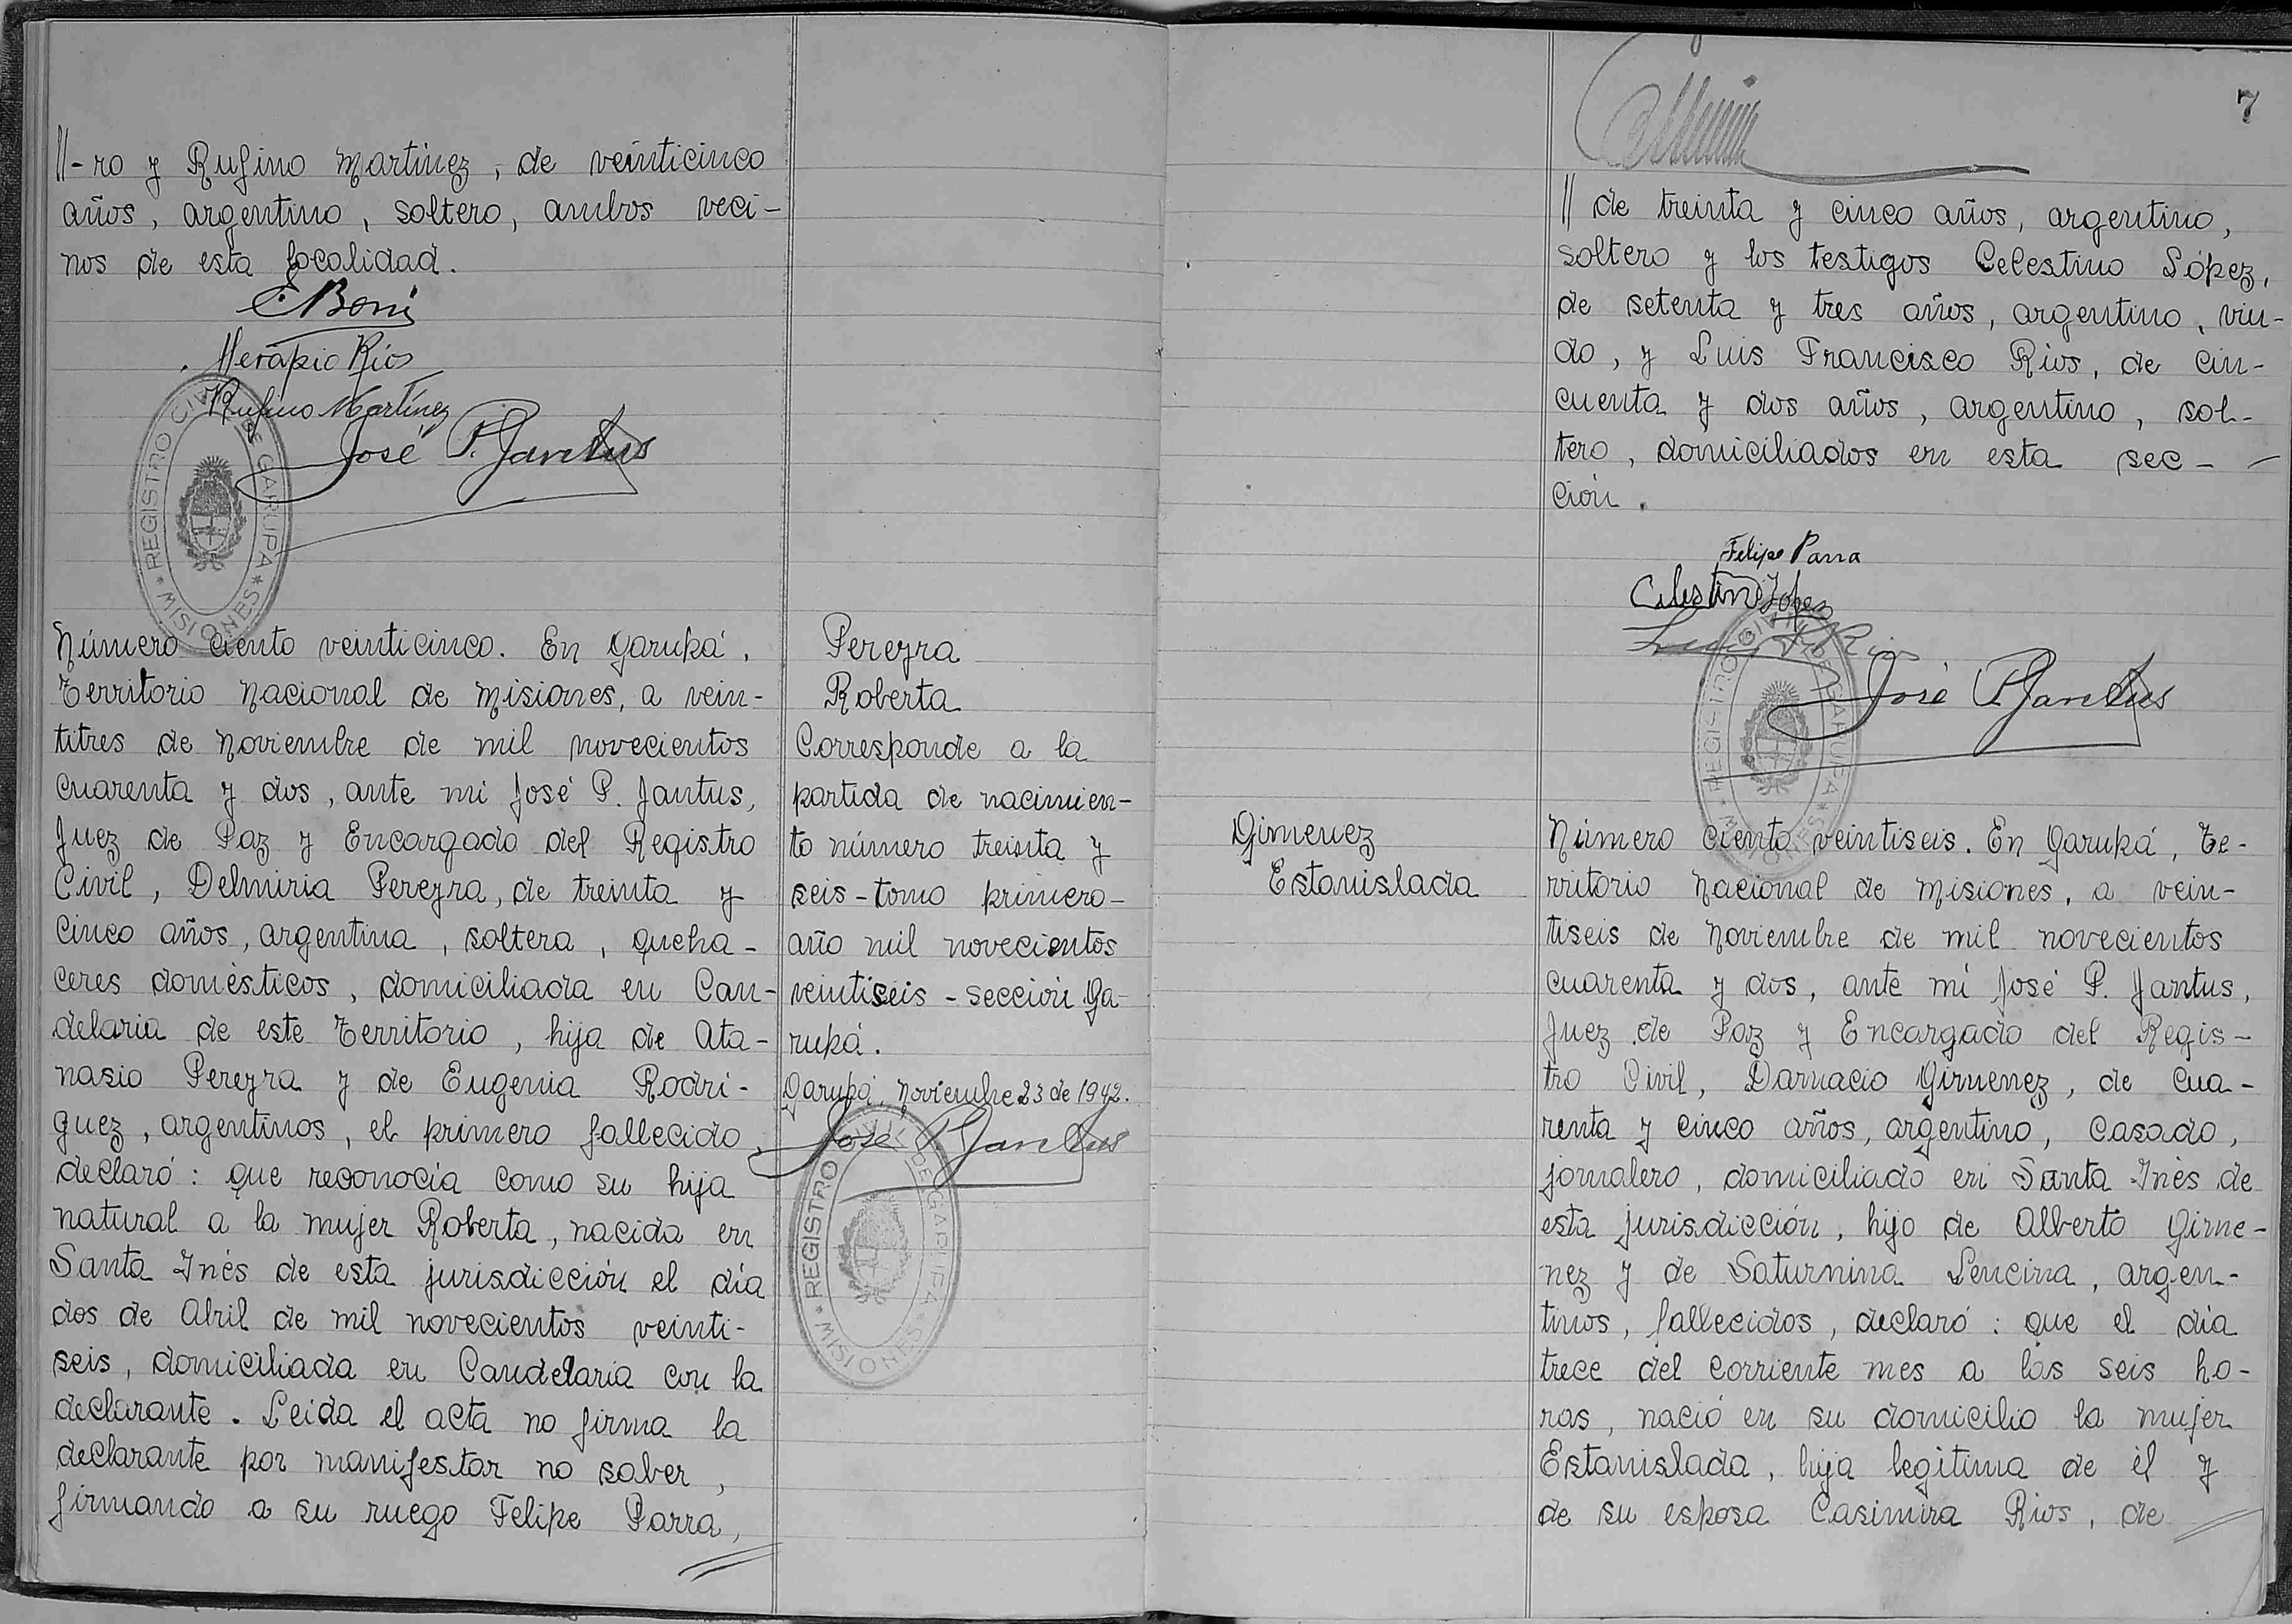 //-ro y Rufino Martinez, de veinticinco
años, argentino, soltero, ambos veci-
nos de esta localidad.
E. Boni
Rios
Rufino Martínez
José P. Jantus
REGISTRO CIVIL DE GARUPA
* MISIONES *
Número ciento veinticinco. En Garupá,
Territorio Nacional de Misiones, a vein-
titres de Noviembre de mil novecientos
cuarenta y dos, ante mi José P. Jantus,
Juez de Paz y Encargado del Registro
Civil, Delmiria Pereyra, de treinta y
cinco años, argentina, soltera, queha-
ceres domésticos, domiciliada en Can-
delaria de este Territorio, hija de Ata-
nasio Pereyra y de Eugenia Rodri-
guez, argentinos, el primero fallecido,
declaró: que reconocía como su hija
natural a la mujer Roberta, nacida en
Santa Inés de esta jurisdicción el día
dos de Abril de mil novecientos veinti-
seis, domiciliada en Candelaria con la
declarante. Leida el acta no firma la
declarante por manifestar no saber,
firmando a su ruego Felipe Parra,
Pereyra
Roberta
Corresponde a la
partida de nacimien-
to número treinta y
seis - tomo primero -
año mil novecientos
veintiseis - sección Ga-
rupá.
Garupá, Noviembre 23 de 1942.
José P. Jantus
REGISTRO CIVIL DE GARUPA
* MISIONES *
7
// de treinta y cinco años, argentino,
soltero y los testigos Celestino López,
de setenta y tres años, argentino, viu-
do, y Luis Francisco Rios, de cin-
cuenta y dos años, argentino, sol-
tero, domiciliados en esta sec-
ción.
Felipe Parra
Celestino Lopez
Luis F. Rios
José P. Jantus
REGISTRO CIVIL DE GARUPA
* MISIONES *
Gimenez
Estanislada
Número ciento veintiseis. En Garupá, Te-
rritorio Nacional de Misiones, a vein-
tiseis de Noviembre de mil novecientos
cuarenta y dos, ante mi José P. Jantus,
Juez de Paz y Encargado del Regis-
tro Civil, Darnacio Gimenez, de cua-
renta y cinco años, argentino, casado,
jornalero, domiciliado en Santa Inés de
esta jurisdicción, hijo de Alberto Gime-
nez y de Saturnina Lencina, argen-
tinos, fallecidos, declaró: que el día
trece del corriente mes a las seis ho-
ras, nació en su domicilio la mujer
Estanislada, hija legitima de él y
de su esposa Casimira Rios, de